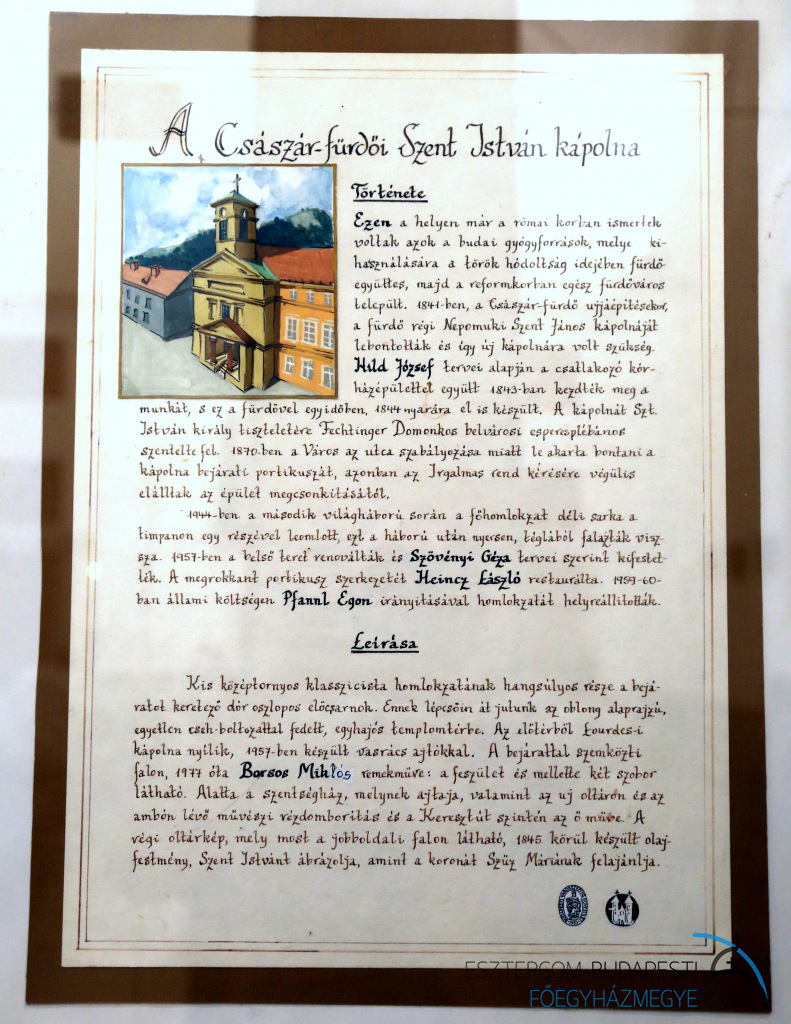 A Császár-fürdői Szent István kápolna
Története
Ezen a helyen már a római korban ismertek
voltak azok a budai gyógyforrások, melye ki-
használására a török hódoltság idejében fürdő-
együttes, majd a reformkorban egész fürdőváros
települt. 1841-ben, a Császár-fürdő ujjáépítésekor,
a fürdő régi Nepomuki Szent János kápolnáját
lebontották és így új kápolnára volt szükség.
Hild József tervei alapján a csatlakozó kór-
házépülettel együtt 1843-ban kezdték meg a
munkát, s ez a fürdővel egyidőben, 1844 nyarára el is készült. A kápolnát Szt.
István király tiszteletére Fechtinger Domonkos belvárosi esperesplébános
szentelte fel. 1870-ben a Város az utca szabályozása miatt le akarta bontani a
kápolna bejárati portikuszát, azonban az Irgalmas rend kérésére végülis
elálltak az épület megcsonkításától.
1944-ben a második világháború során a főhomlokzat déli sarka a
timpanon egy részével leomlott, ezt a háború után nyersen, téglából falazták visz-
sza. 1957-ben a belső teret renoválták és Szövényi Géza tervei szerint kifestet-
ték. A megrokkant portikusz szerkezetét Heincz László restaurálta. 1959-60-
ban állami költségen Pfannl Egon irányításával homlokzatát helyreállították.
Leírása
Kis középtornyos klasszicista homlokzatának hangsúlyos része a bejá-
ratot keretező dór oszlopos előcsarnok. Ennek lépcsőin át jutunk az oblong alaprajzú,
egyetlen cseh-boltozattal fedett, egyhajós templomtérbe. Az előtérből Lourdes-i
kápolna nyílik, 1957-ben készült vasrács ajtókkal. A bejárattal szemközti
falon, 1977 óta Borsos Miklós remekműve: a feszület és mellette két szobor
látható. Alatta a szentségház, melynek ajtaja, valamint az uj oltáron és az
ambón lévő művészi rézdomborítás és a Keresztút szintén az ő műve. A
régi oltárkép, mely most a jobboldali falon látható, 1845 körül készült olaj-
festmény, Szent Istvánt ábrázolja, amint a koronát Szűz Máriának felajánlja.
ESZTERGOM-BUDAPESTI
FŐEGYHÁZMEGYE